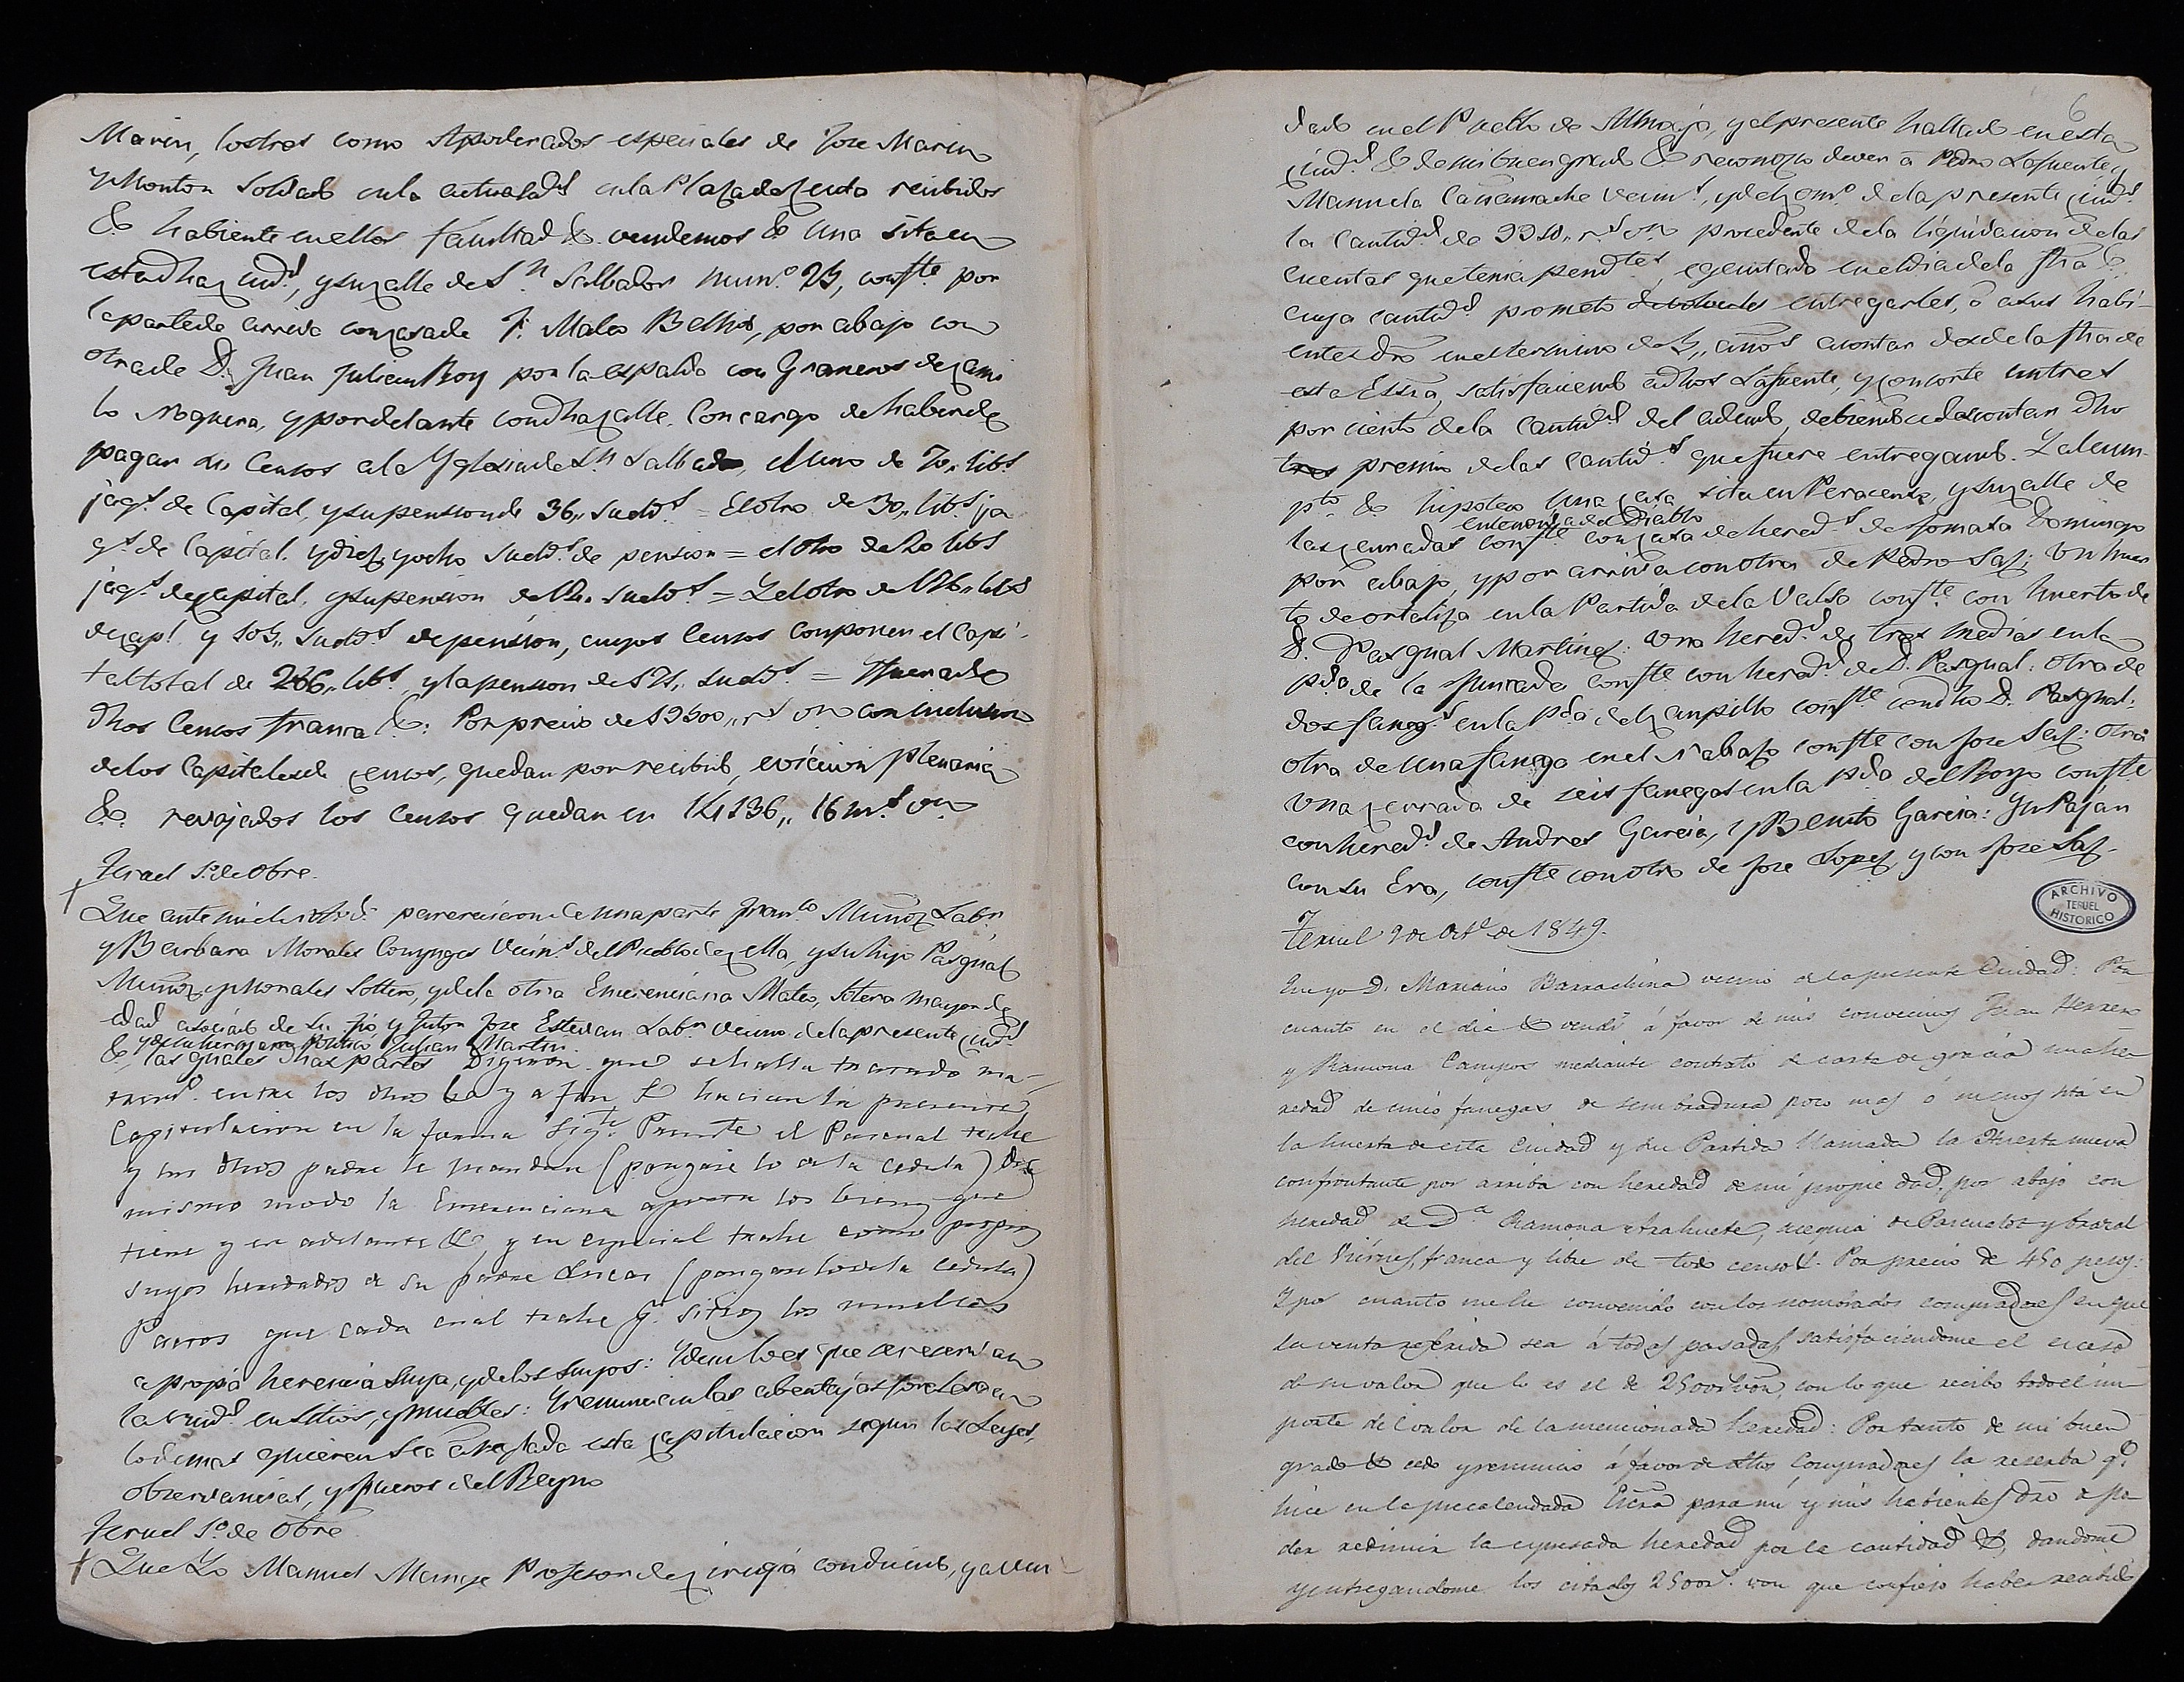 Marin, los tres como Apoderados especiales de Jose Marin
y Monton Soldado en la actualid.d en la Plaza de Zeuta recibidos
&. habiente en ellos facultad &. vendemos &. una sita en
esta dha ciud.d, y su calle de S.n Salbador num.o 25, conf.te por
la parte de arriva con casa de F. Mateo Bellido, por abajo con
otra de D. Juan Julian Roy por la espalda con Graneros de Cami
lo Noguera, y por delante con dha calle. Con cargo de haber de
pagar los Censos a la Yglesia de S.n Salbador, el uno de 70,, lib.s
jaq.s de Capital, y su pension de 36,, sueld.s = El otro de 30,, lib.s ja
q.s de Capital. y diez y ocho sueld.s de pension = el otro de 20 lib.s
jaq.s de capital, y su pension de 12,, sueld.s = Y el otro de 176,, lib.s
de cap.l y 105,, sueld.s de pension, cuyos Censos componen el Capi-
tal total de 286,, lib.s, y la pension de 171,, sueld.s = Y fuera de
dhos Censos franca &.: Por precio de 19500,, r.s v.n con inclusion
de los Capitales de censos, quedan por recibido, eviccion plenaria
&. revajados los Censos quedan en 14136,, 16 m.s v.n
Teruel 1.o de Obre.
Que ante mi el parecieron de una parte Fran.co Muñoz Lab.r,
y Barbara Morales Conyuges Vecin.s del Pueblo de Cella, y su hijo Pasqual
Muñoz y Morales Soltero, y de la otra Emerenciana Mateo, Soltera mayor de
edad asociada de su tio y Tutor Jose Estevan Lab.r vecino de la presente ciud.d
y de su hermano Politico Julian Martin
&, las quales dhas partes Digeron que se halla tratado ma-
trim.o entre los dhos &a y a fin &. hacian la presente
Capitulacion en la forma sig.te Prim.te el Pascual trahe
y sus dhos padres le mandan (pongase lo de la cedula) Del
mismo modo la Emerenciana aporta los bienes que
tiene y en adelante &, y en especial trahe como propios
suyos heredados de su padre Lucas (pongase lo de la cedula)
Pactos que cada cual trahe q.e sitios los muebles
a propia herencia suya, y de los suyos: Yden los que adquirieran
la viud.d en sitios, y muebles: Y renuncian las abentajas forales en
lo demas quieren sea areglada esta capitulacion segun las Leyes,
observancias, y fueros del Reyno
Teruel 1.o de Obre
Que Yo Manuel Monge Profesor de cirugia conducido, y avecin-
6
dado en el Pueblo de Almoja, y al presente hallado en esta
ciud.d &. de mi buen grado &. reconozco dever á Pedro Lafuente y
Manuela Carramache vecin.s, y del com.o de la presente ciud.d
la cantid.d de 9950,, r.s v.n procedente de la liquidacion de las
cuentas que tenia pend.tes egecutada en el dia de la fha &.
cuya cantid.d prometo devolverles entregarles, ó a sus habi-
entes dro en el termino de 5,, años acontar desde la fha de
esta Essra, satisfaciendo a dhos Lafuente, y consorte un tres
por ciento de la cantid.d del adeudo, debiendo descontar dho
tres premio de las cantid.s que fuere entregando. Y al cum-
pto &. hipoteco Una casa sita en Peracense, y su calle de
en la del Diablo
las cerradas conf.te con casa de hered.s de Tomasa Domingo
por abajo, y por arriva con otra de Pedro Saz: Un huer
to de ortaliza en la Partida de la Valsa conf.te con huerto de
D. Pasqual Martinez: una hered.d de tres medias en la
pda de la Juncada conf.te con hered.d de D. Pasqual: otra de
dos faneg.s en la Pda del campillo conf.te con dho D. Pasqual:
otra de una fanega en el Nabajo conf.te con Jose Saz: Otra
Una cerrada de seis fanegas en la pda del Royo conf.te
con hered.d de Andres Garcia, y Benito Garcia: Yn Pajar
con su Era, conf.te con otro de Jose Lopez, y con Jose Saz.
ARCHIVO
TERUEL
HISTORICO
Teruel 9 de Oct.e de 1849.
Que yo D. Mariano Barrachina vecino de la presente Ciudad: Por
cuanto en el dia &. vendí á favor de mis convecinos Juan Herrero
y Ramona Campos mediante contrato de carta de gracia una he-
redad de cinco fanegas de sembradura poco mas ó menos sita en
la huerta de esta Ciudad y su Partida llamada la Huerta nueva
confrontante por arriba con heredad de mi propiedad, por abajo con
heredad de D.a Ramona Arahuete, acequia de Parcuelos y brazal
del Viernes, franca y libre de todo censo &. Por precio de 450 pesos:
Y por cuanto me he convenido con los nombrados compradores en que
la venta referida sea á todas pasadas satisfaciendome el exceso
de su valor que lo es el de 2500 r.s von, con lo que recibo todo el im-
porte del valor de la mencionada heredad: Por tanto de mi buen
grado &. cedo y renuncio á favor de dhos Compradores la reserba q.e
hice en la precalendada Escra para mi y mis habientes dro de po-
der redimir la espresada heredad por la cantidad &, dandome
y entregandome los citados 2500 r.s von que confieso haber recibido